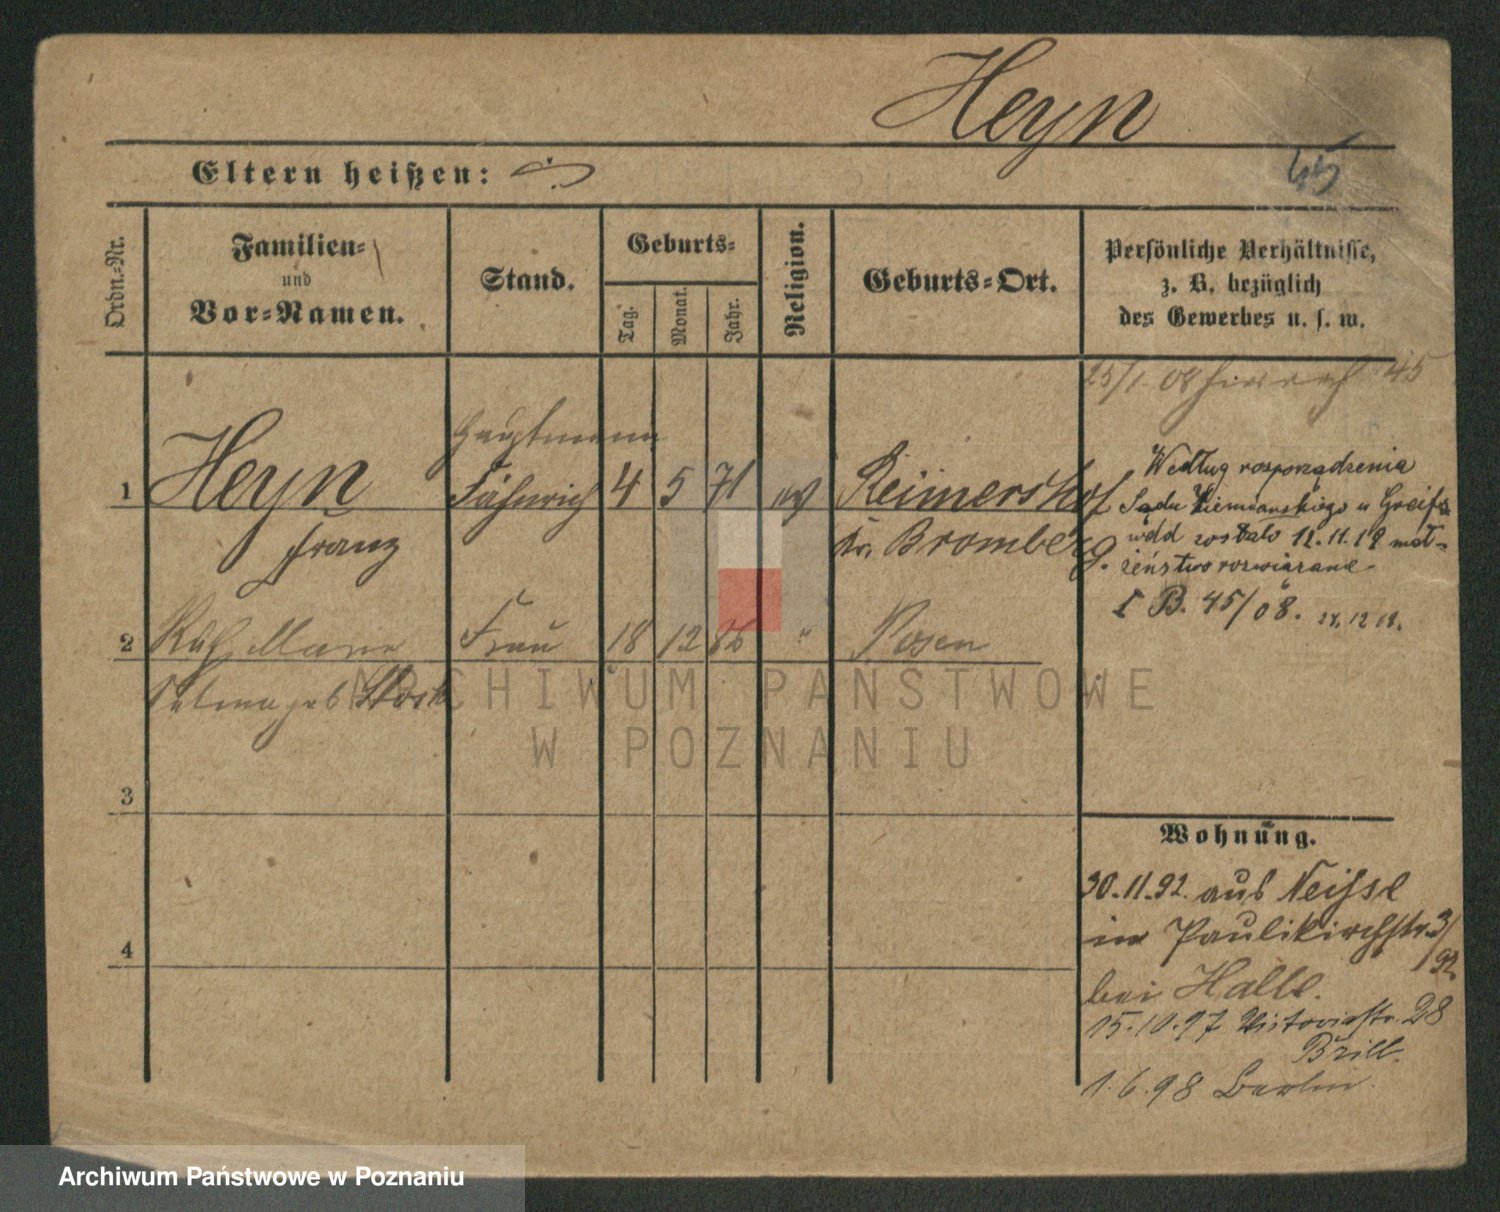 Heyn
45
Eltern heißen:
Ordn.-Nr.
Familien-
und
Vor-Namen.
Stand.
Geburts-
Tag.
Monat.
Jahr.
Religion.
Geburts-Ort.
Persönliche Verhältnisse,
z. B. bezüglich
des Gewerbes u. s. w.
25/1 08 45
Hauptmann
1 Heyn Fähnrich 4 5 71 ev Reimershof
Franz Kr. Bromberg.
Według rozporządzenia
Sądu Ziemiańskiego u Greifs
wdd zostało 12.11.18 mał-
żeństwo rozwiązane
I B. 45/08. 27.12.18.
2 Marie Frau 18 12 86 " Posen
Selma geb
3
4
Wohnung.
30.11.92. aus Neisse
in Paulikirchstr. 3/
92
bei Halle.
15.10.97 Victoriastr. 28
Brill.
1.6.98 Berlin.
ARCHIWUM PAŃSTWOWE
W POZNANIU
Archiwum Państwowe w Poznaniu